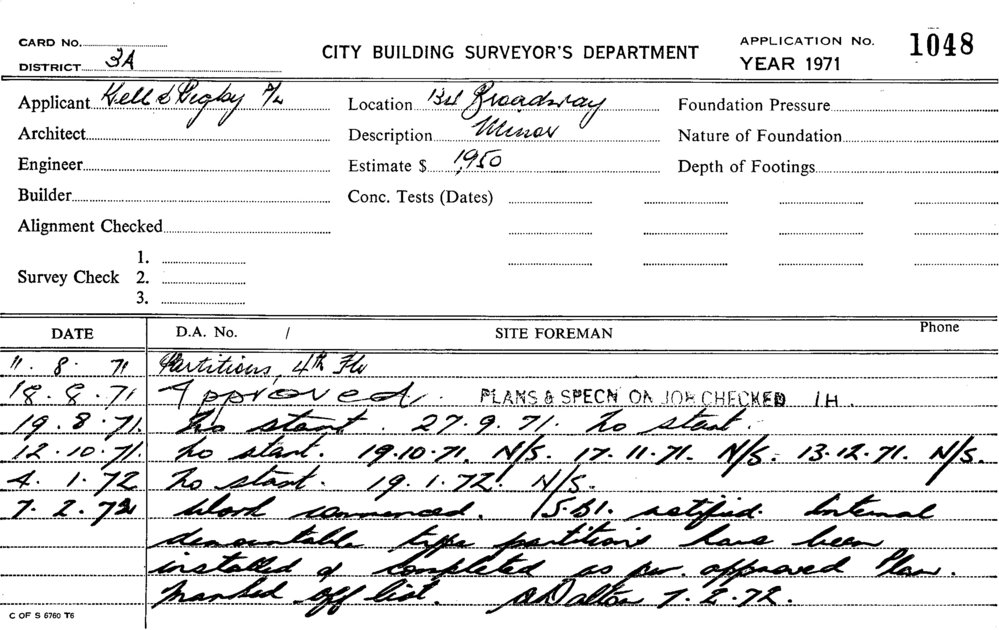 CARD No.
DISTRICT 3A
CITY BUILDING SURVEYOR'S DEPARTMENT
APPLICATION No. 1048
YEAR 1971
Applicant Kell & Rigby P/L
Location 134 Broadway
Foundation Pressure
Architect
Description Minor
Nature of Foundation
Engineer
Estimate $ 1,950
Depth of Footings
Builder
Conc. Tests (Dates)
Alignment Checked
Survey Check
1.
2.
3.
DATE
D.A. No. /
SITE FOREMAN
Phone
11. 8. 71 Partitions, 4th Flr
18. 8. 71 Approved. PLANS & SPECN ON JOB CHECKED
19. 8. 71. No start. 27. 9. 71. No start.
12. 10. 71. No start. 19. 10. 71. N/S. 17. 11. 71. N/S. 13. 12. 71. N/S.
4. 1. 72 No start. 19. 1. 72. N/S.
7. 2. 72 Work commenced. notified. Internal
demountable type partitions have been
installed & completed as per. approved Plan.
Marked off list. Dalton 7. 2. 72.
C OF S 6760 T6